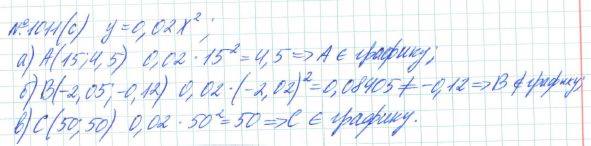 №1011(с) y=0,02x²;
а) А(15;4,5) 0,02·15²=4,5=>А ∈ графику;
б) В(-2,05;-0,12) 0,02·(-2,02)²=0,08405≠-0,12=>В ∉ графику;
в) С(50;50) 0,02·50²=50=>С ∈ графику.